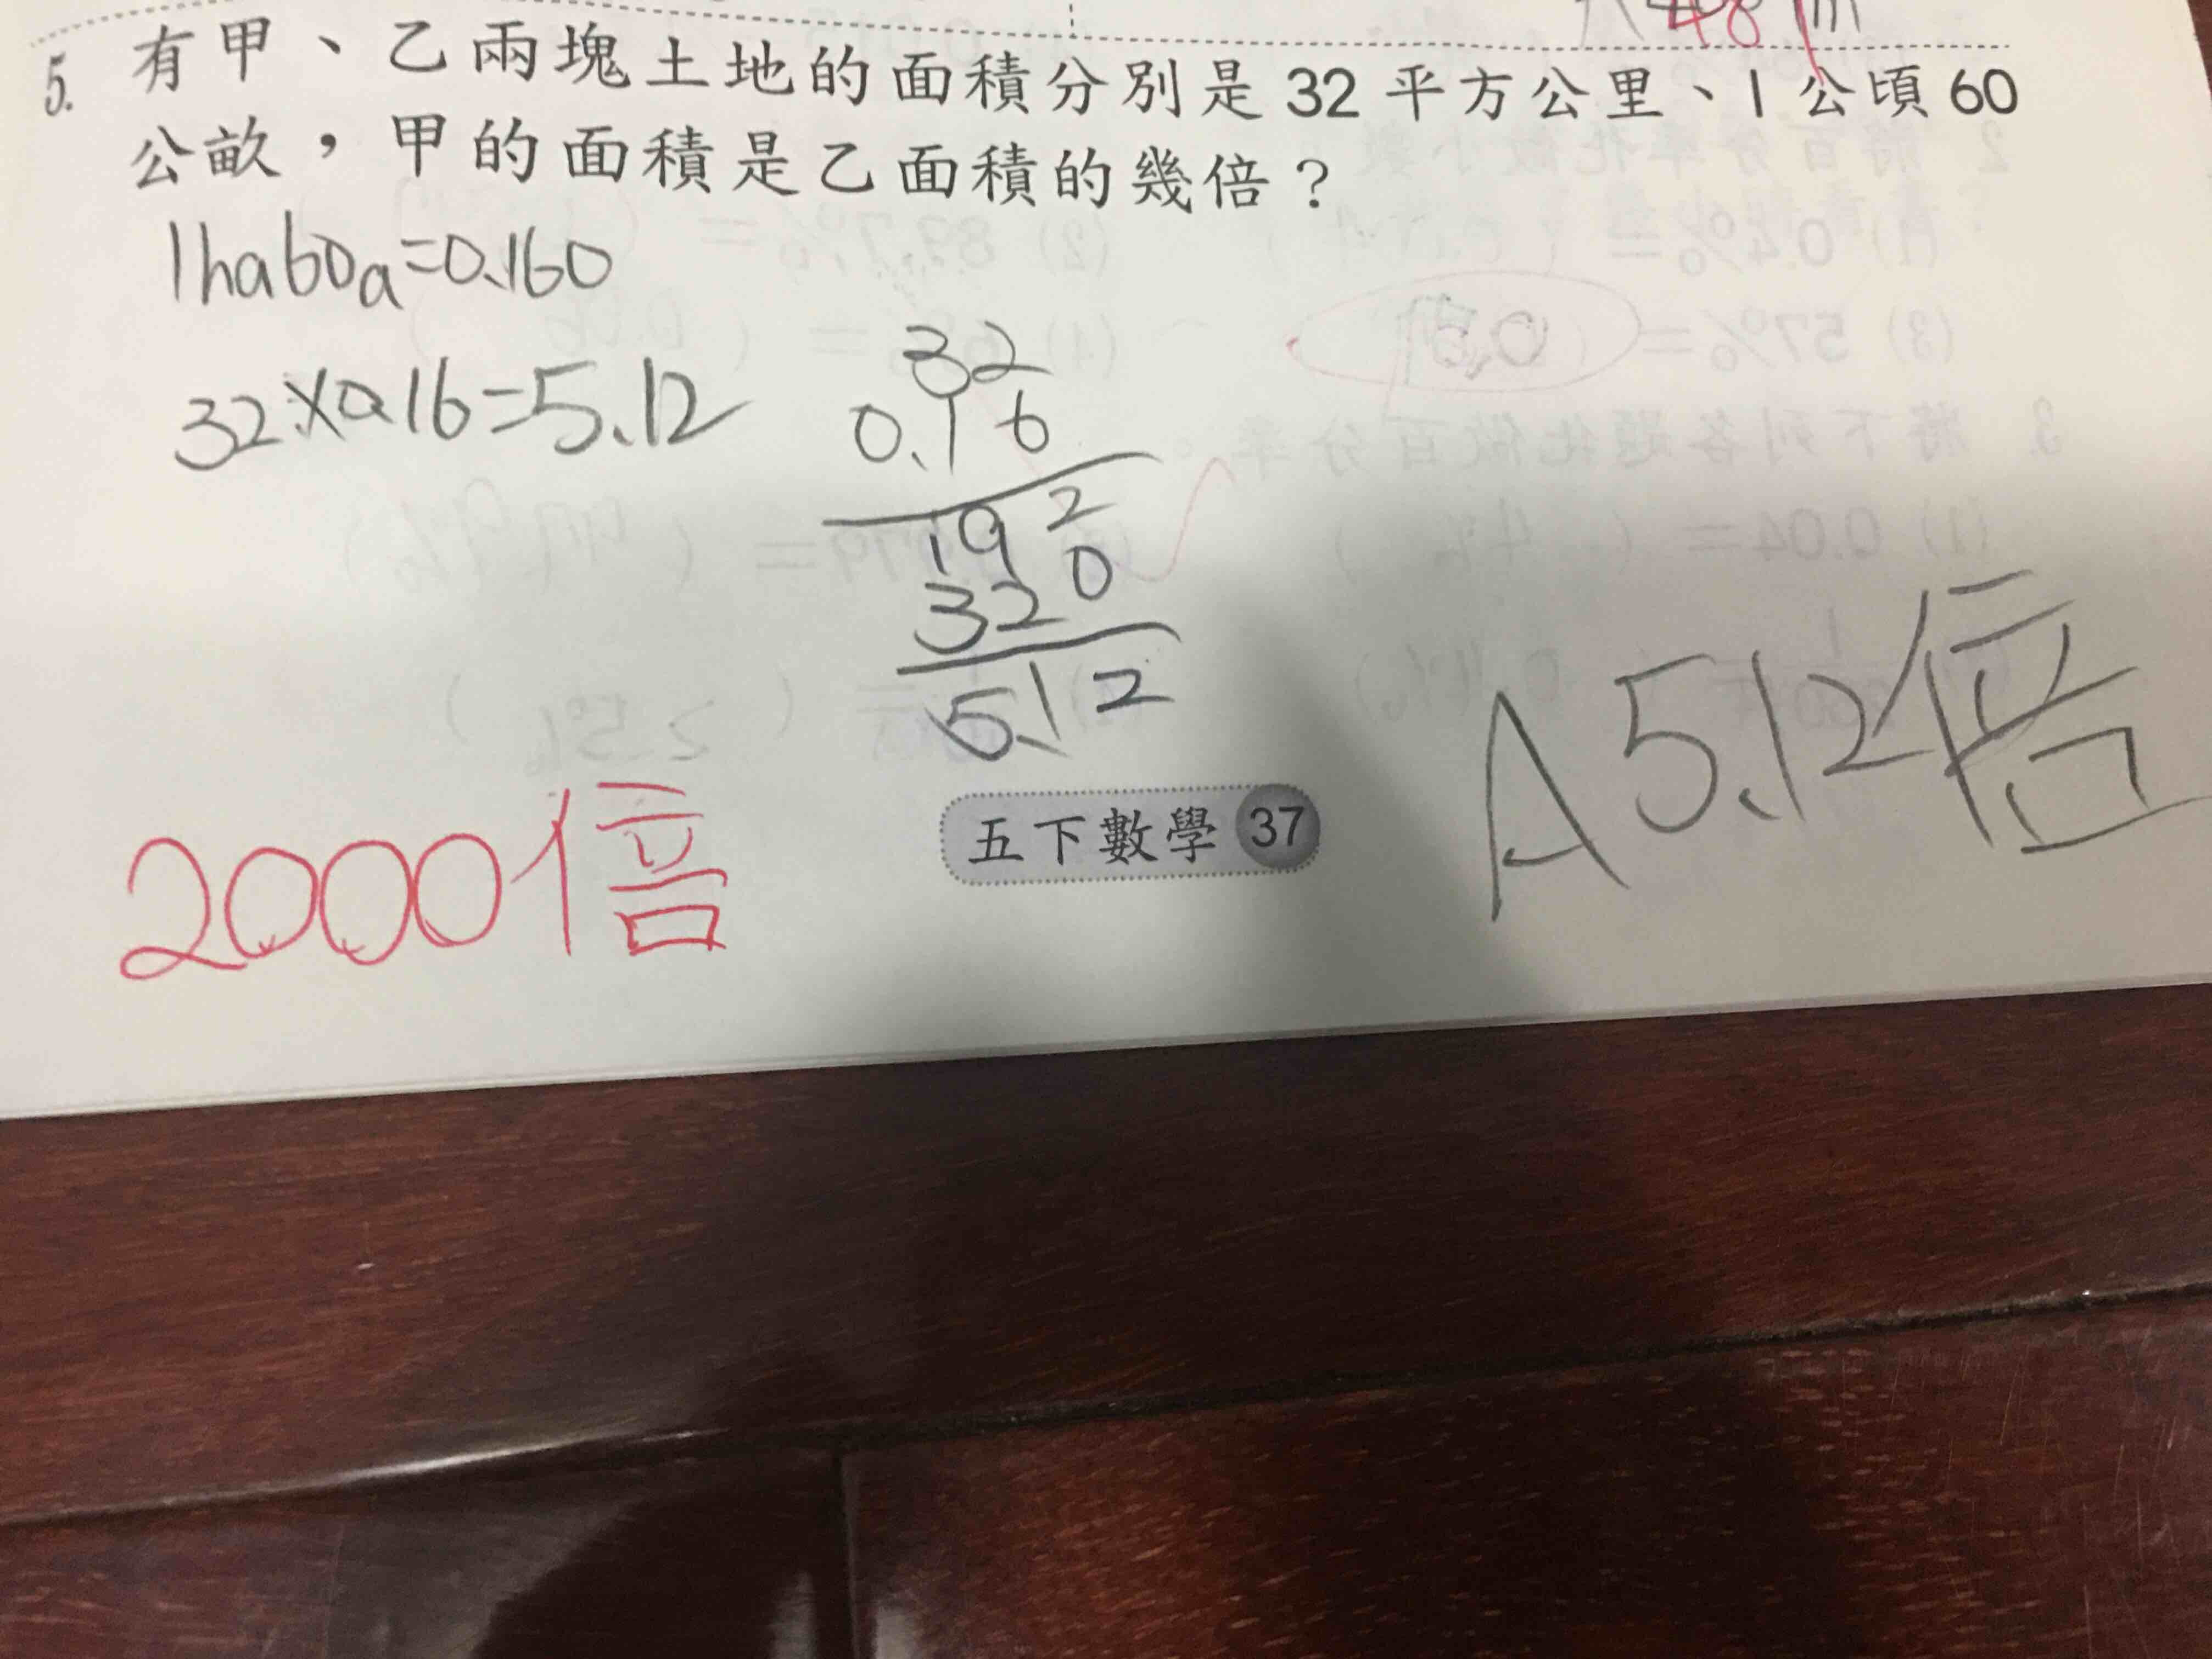 48 m
5. 有甲、乙兩塊土地的面積分別是 32 平方公里、1 公頃 60
公畝，甲的面積是乙面積的幾倍？
1ha60a=0.160
32×0.16=5.12
32
0.16
192
320
5.12
A 5.12倍
2000倍
五下數學 37